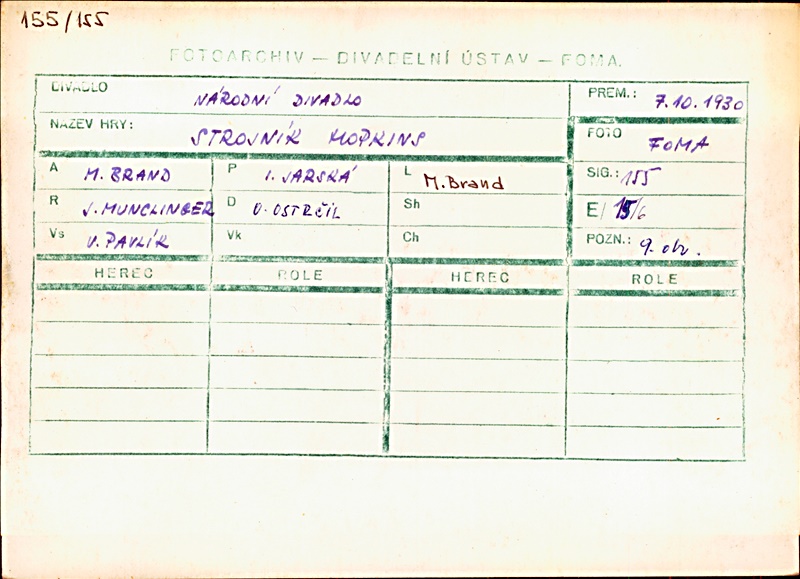 155/155
FOTOARCHIV — DIVADELNÍ ÚSTAV — FOMA.
DIVADLO NÁRODNÍ DIVADLO PREM.: 7.10.1930
NÁZEV HRY: STROJNÍK HOPKINS FOTO FOMA
A M. BRAND P I. JARSKÁ L M. Brand SIG.: 155
R J. MUNCLINGER D O. OSTRČIL Sh E/ 15/6
Vs V. PAVLÍK Vk Ch POZN.: 9. obr.
HEREC ROLE HEREC ROLE